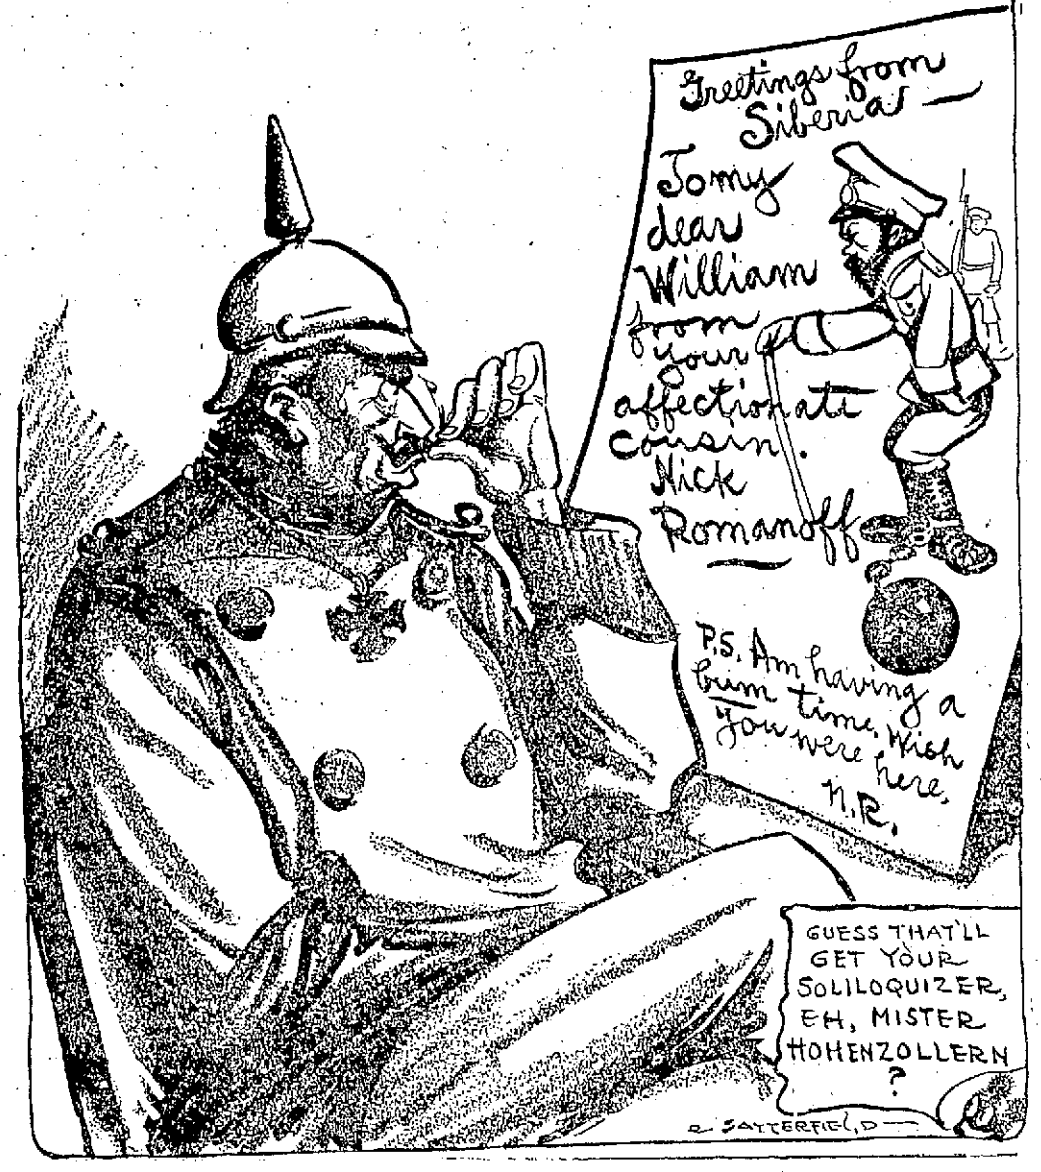 Greetings from
Siberia —
To my
dear
William
from
your
affectionate
cousin.
Nick
Romanoff
P.S. Am having a
bum time. Wish
you were here.
N.R.
GUESS THAT'LL
GET YOUR
SOLILOQUIZER,
EH, MISTER
HOHENZOLLERN
?
SATTERFIELD —